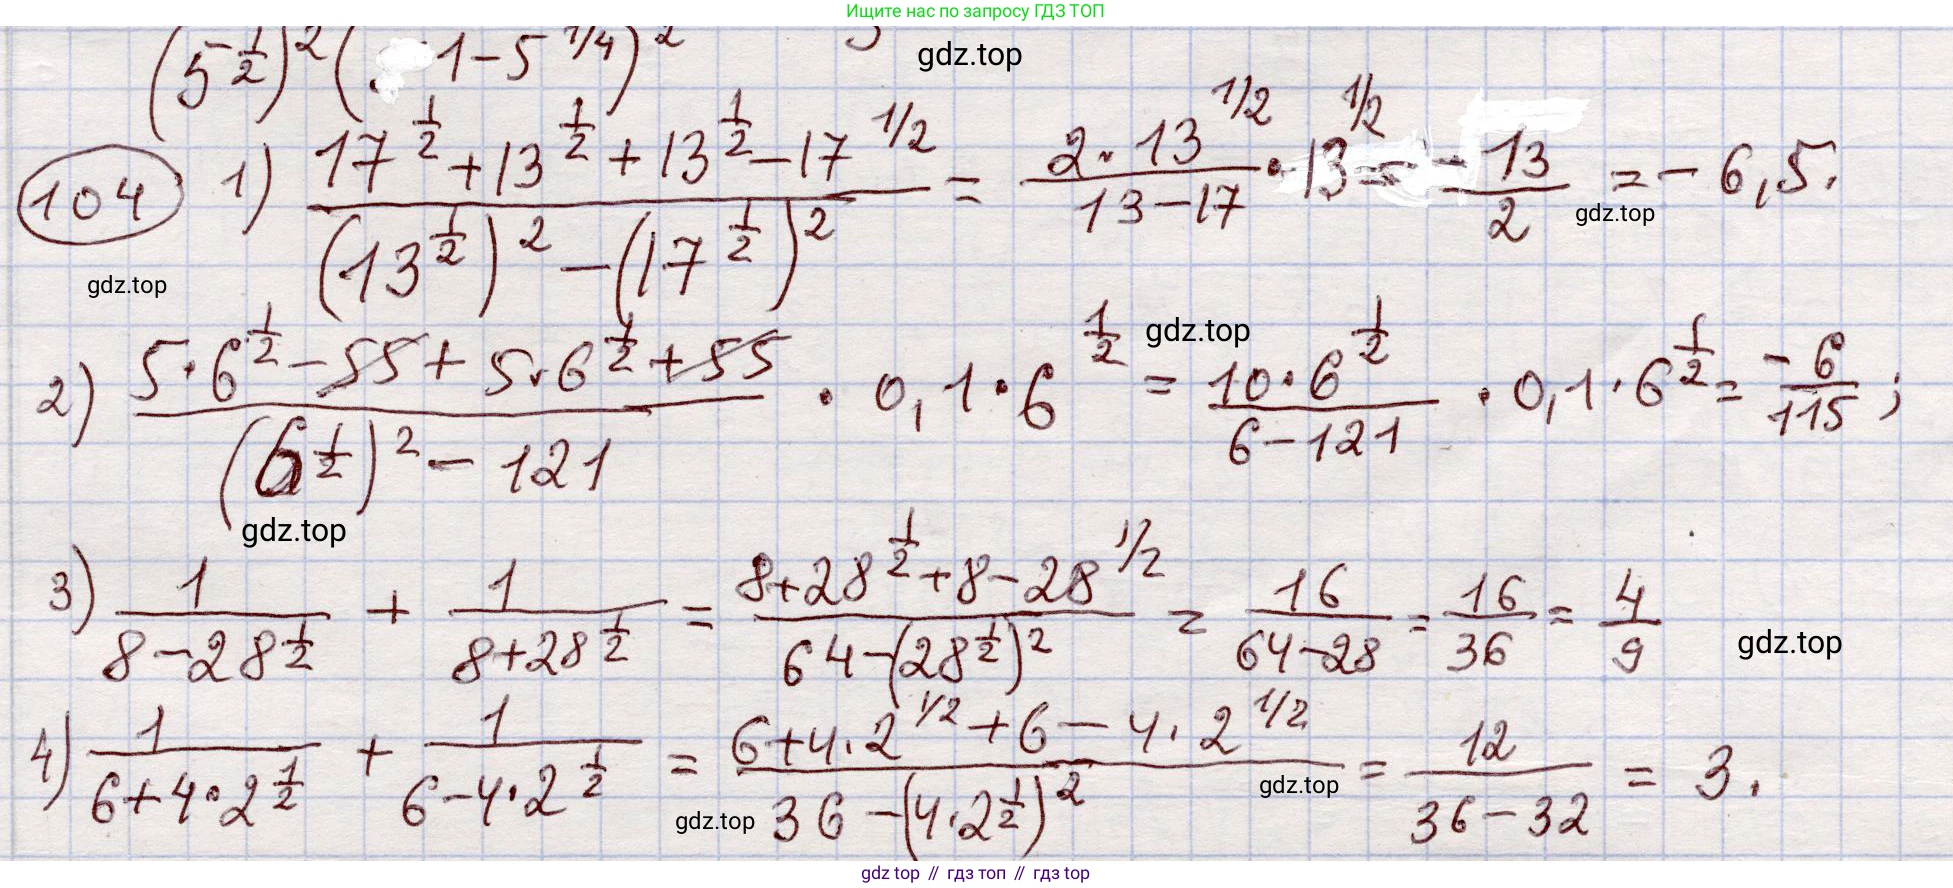 Ищите нас по запросу ГДЗ ТОП
(5^{-\frac{1}{2}})^2 ( 1-5^{1/4})^2
gdz.top
104 1) \frac{17^{\frac{1}{2}}+13^{\frac{1}{2}}+13^{\frac{1}{2}}-17^{1/2}}{(13^{\frac{1}{2}})^2-(17^{\frac{1}{2}})^2} = \frac{2·13^{1/2}}{13-17}·13^{1/2} = -\frac{13}{2} = -6,5.
gdz.top
gdz.top
2) \frac{5·6^{\frac{1}{2}}-55+5·6^{\frac{1}{2}}+55}{(6^{\frac{1}{2}})^2-121} · 0,1·6^{\frac{1}{2}} = \frac{10·6^{\frac{1}{2}}}{6-121} · 0,1·6^{\frac{1}{2}} = -\frac{6}{115};
gdz.top
gdz.top
3) \frac{1}{8-28^{\frac{1}{2}}} + \frac{1}{8+28^{\frac{1}{2}}} = \frac{8+28^{\frac{1}{2}}+8-28^{1/2}}{64-(28^{\frac{1}{2}})^2} = \frac{16}{64-28} = \frac{16}{36} = \frac{4}{9}
gdz.top
4) \frac{1}{6+4·2^{\frac{1}{2}}} + \frac{1}{6-4·2^{\frac{1}{2}}} = \frac{6+4·2^{1/2}+6-4·2^{1/2}}{36-(4·2^{\frac{1}{2}})^2} = \frac{12}{36-32} = 3.
gdz.top
gdz.top
gdz top // гдз топ // gdz top